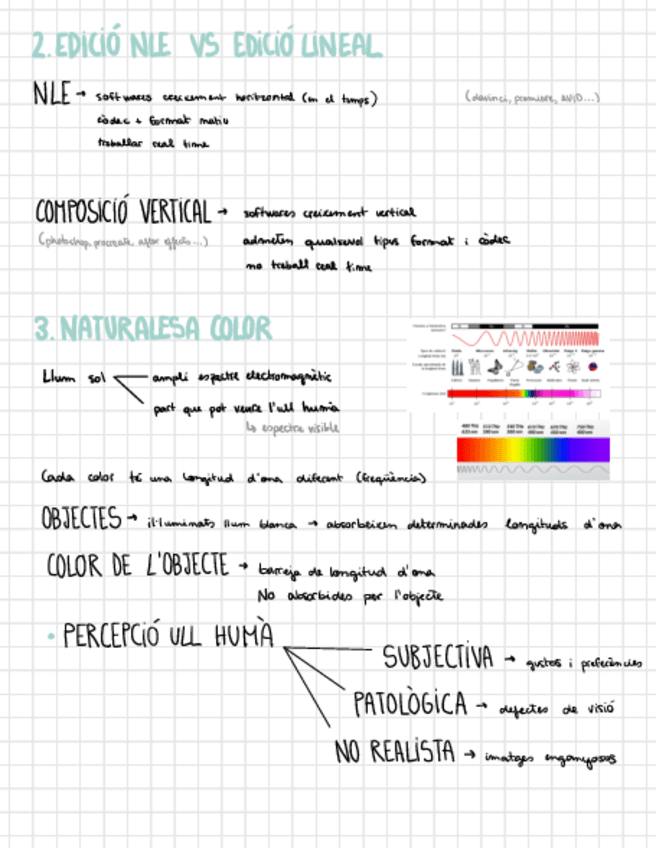 2. EDICIÓ NLE VS EDICIÓ LINEAL
NLE → softwares creixement horitzontal (en el temps) (davinci, premiere, AVID...)
còdec + format natiu
treballar real time
COMPOSICIÓ VERTICAL → softwares creixement vertical
(photoshop, procreate, after effects...) admeten qualsevol tipus format i còdec
no treball real time
3. NATURALESA COLOR
Llum sol ampli espectre electromagnètic
part que pot veure l'ull humà
↳ espectre visible
Cada color té una longitud d'ona diferent (freqüència)
OBJECTES → il·luminats llum blanca → absorbeixen determinades longituds d'ona
COLOR DE L'OBJECTE → barreja de longitud d'ona
No absorbides per l'objecte
• PERCEPCIÓ ULL HUMÀ
SUBJECTIVA → gustos i preferències
PATOLÒGICA → defectes de visió
NO REALISTA → imatges enganyoses